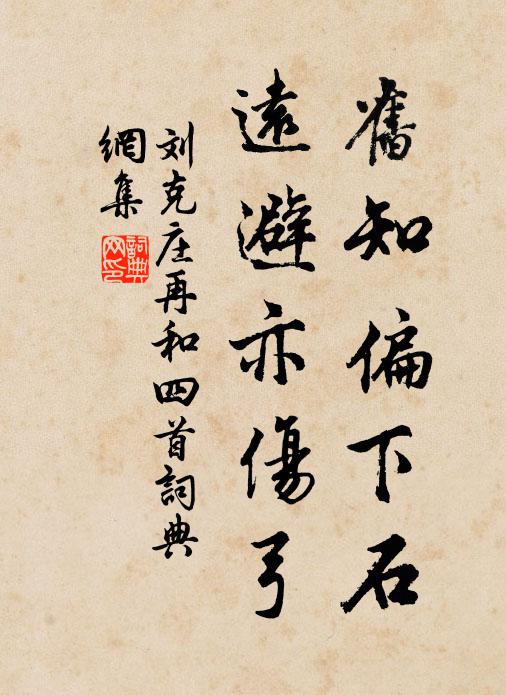 舊知偏下石
遠避亦傷弓
刘克庄再和四首詞典
網集
詞典
网印